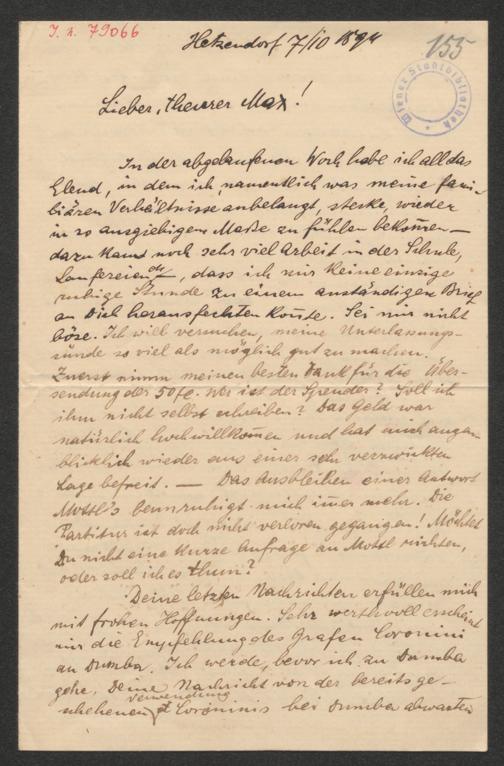 I. N. 79066
Hetzendorf 7/10 1894
155
Wiener Stadtbibliothek
Lieber, theurer Max!
In der abgelaufenen Woch habe ich all das
Elend, in dem ich, namentlich was meine fami-
liären Verhältnisse anbelangt, stecke, wieder
in so ausgiebigem Maße zu fühlen bekom̅en —
dazu kam noch sehr viel Arbeit in der Schule,
Laufereien etc, dass ich mir keine einzige
ruhige Stunde zu einem anständigen Brief
an Dich herausfechten kon̅te. Sei mir nicht
böse. Ich will versuchen, meine Unterlassungs-
sünde so viel als möglich gut zu machen.
Zuerst nim̅ meinen besten Dank für die Über-
sendung der 50 fl. Wer ist der Spender? Soll ich
ihm nicht selbst schreiben? Das Geld war
natürlich hochwillkom̅en und hat mich augen-
blicklich wieder aus einer sehr verzwickten
Lage befreit. — Das Ausbleiben einer Antwort
Mottl's beunruhigt mich im̅er mehr. Die
Partitur ist doch nicht verloren gegangen! Möchtest
Du nicht eine kurze Anfrage an Mottl richten,
oder soll ich es thun?
Deine letzten Nachrichten erfüllen mich
mit frohen Hoffnungen. Sehr werthvoll erscheint
mir die Empfehlung des Grafen Coronini
an Dumba. Ich werde, bevor ich zu Dumba
gehe, Deine Nachricht von der bereits ge-
schehenen Verwendung Coroninis bei Dumba abwarten